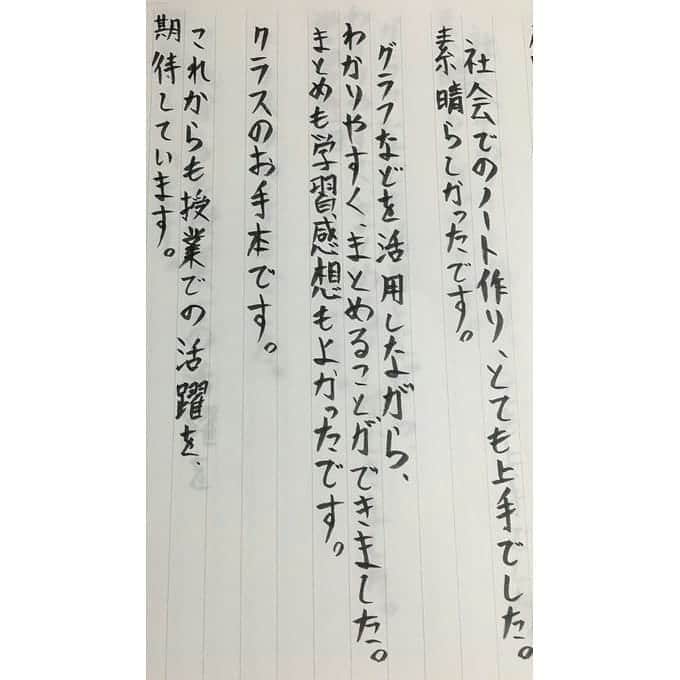 社会でのノート作り、とても上手でした。
素晴らしかったです。
グラフなどを活用しながら、
わかりやすく、まとめることができました。
まとめも学習感想もよかったです。
クラスのお手本です。
これからも授業での活躍を、
期待しています。